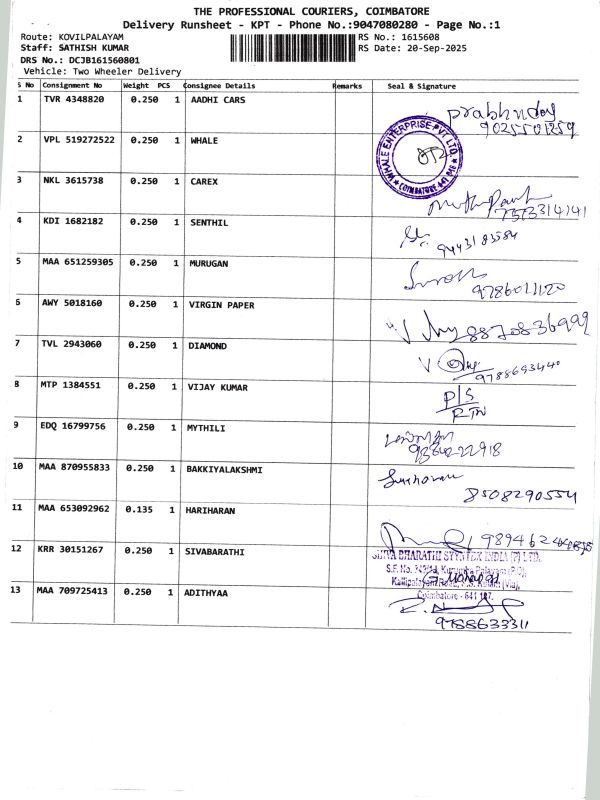 THE PROFESSIONAL COURIERS, COIMBATORE
Delivery Runsheet - KPT - Phone No.:9047080280 - Page No.:1
Route: KOVILPALAYAM RS No.: 1615608
Staff: SATHISH KUMAR RS Date: 20-Sep-2025
DRS No.: DCJB161560801
Vehicle: Two Wheeler Delivery
S No Consignment No Weight PCS Consignee Details Remarks Seal & Signature
1 TVR 4348820 0.250 1 AADHI CARS
9025501259
2 VPL 519272522 0.250 1 WHALE
WHALE ENTERPRISE PVT LTD.
COIMBATORE
3 NKL 3615738 0.250 1 CAREX
7373314141
4 KDI 1682182 0.250 1 SENTHIL
9443183584
5 MAA 651259305 0.250 1 MURUGAN
9786011120
6 AWY 5018160 0.250 1 VIRGIN PAPER
7 TVL 2943060 0.250 1 DIAMOND
8 MTP 1384551 0.250 1 VIJAY KUMAR
P/S
RTN
9 EDQ 16799756 0.250 1 MYTHILI
10 MAA 870955833 0.250 1 BAKKIYALAKSHMI
8508290554
11 MAA 653092962 0.135 1 HARIHARAN
12 KRR 30151267 0.250 1 SIVABARATHI
SHIVA BHARATHI INDIA (P) LTD.
S.F. No.
Coimbatore - 641 107.
13 MAA 709725413 0.250 1 ADITHYAA
9788633311